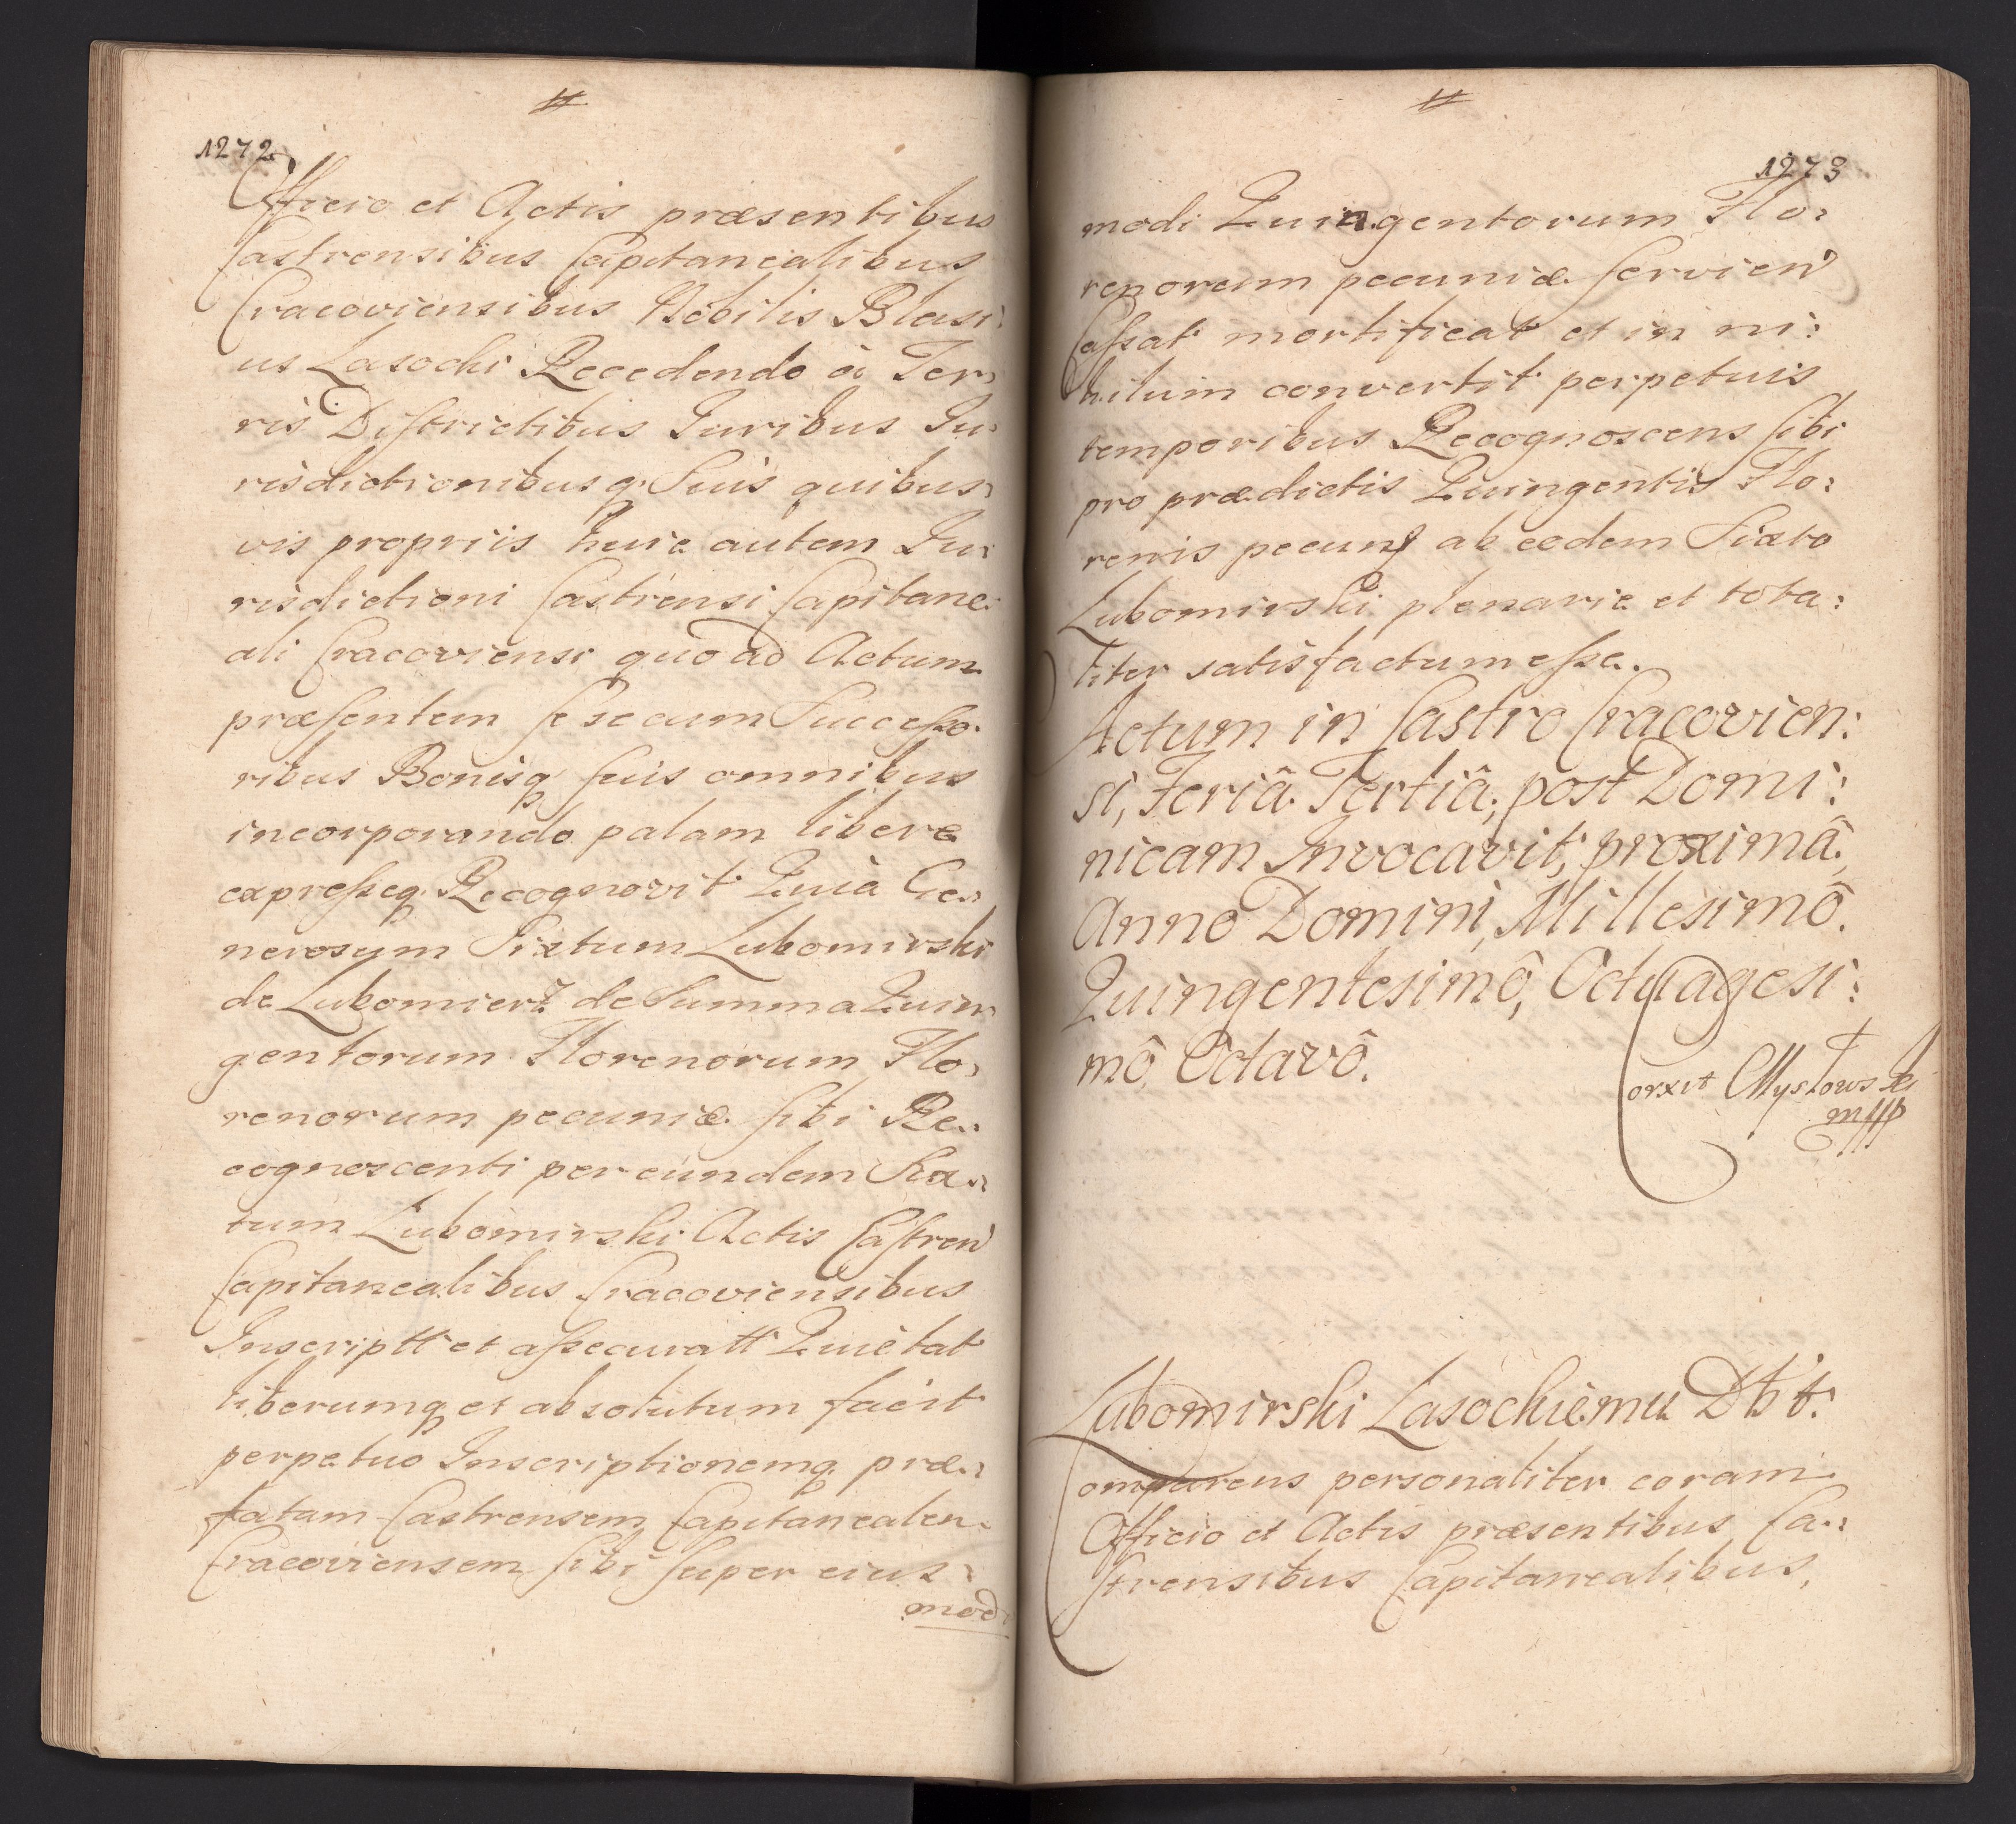 #
1272.
Officio et Actis præsentibus
Castrensibus Capitanealibus
Cracoviensibus Nobilis Blasi:
us Lasochi Recedendo à Ter:
ris Districtibus Juribus Ju:
risdictionibusq. Suis quibus:
vis propriis huic autem Ju:
risdictioni Castrensi Capitane:
ali Cracoviensi quo ad Actum
præsentem se secum Successo:
ribus Bonisq suis omnibus
incorporando palam libere
expresseq. Recognovit Quia Ge:
nerosum Sixtum Lubomirski
de Lubomierz de Summa Quin:
gentorum Florenorum Flo:
renorum pecuniæ sibi Re:
cognoscenti per eundem Six:
tum Lubomirski Actis Castren
Capitanealibus Cracoviensibus
Inscriptt et assecuratt Quietat
liberumq et absolutum facit
perpetuo Inscriptionemq. præ:
fatam Castrensem Capitanealem
Cracoviensem sibi super eius:
modi
#
1273
modi Quingentorum Flo:
renorum pecuniæ servien
Cassat mortificat et in ni:
hilum convertit perpetuis
temporibus Recognoscens sibi
pro prædictis Quingentis Flo:
renis pecung ab eodem Sixto
Lubomirski plenarie et tota:
liter satisfactum esse.
Actum in Castro Cracovien:
si, Feriâ Tertiâ, post Domi:
nicam Invocavit, proximâ,
Anno Domini, Millesimô.
Quingentesimô, Octuagesi:
mô Octavô.
Corxit Mysłowski
mpp
Lubomirski Lasochiemu Dbt.
Comparens personaliter coram
Officio et Actis præsentibus Ca:
strensibus Capitanealibus,